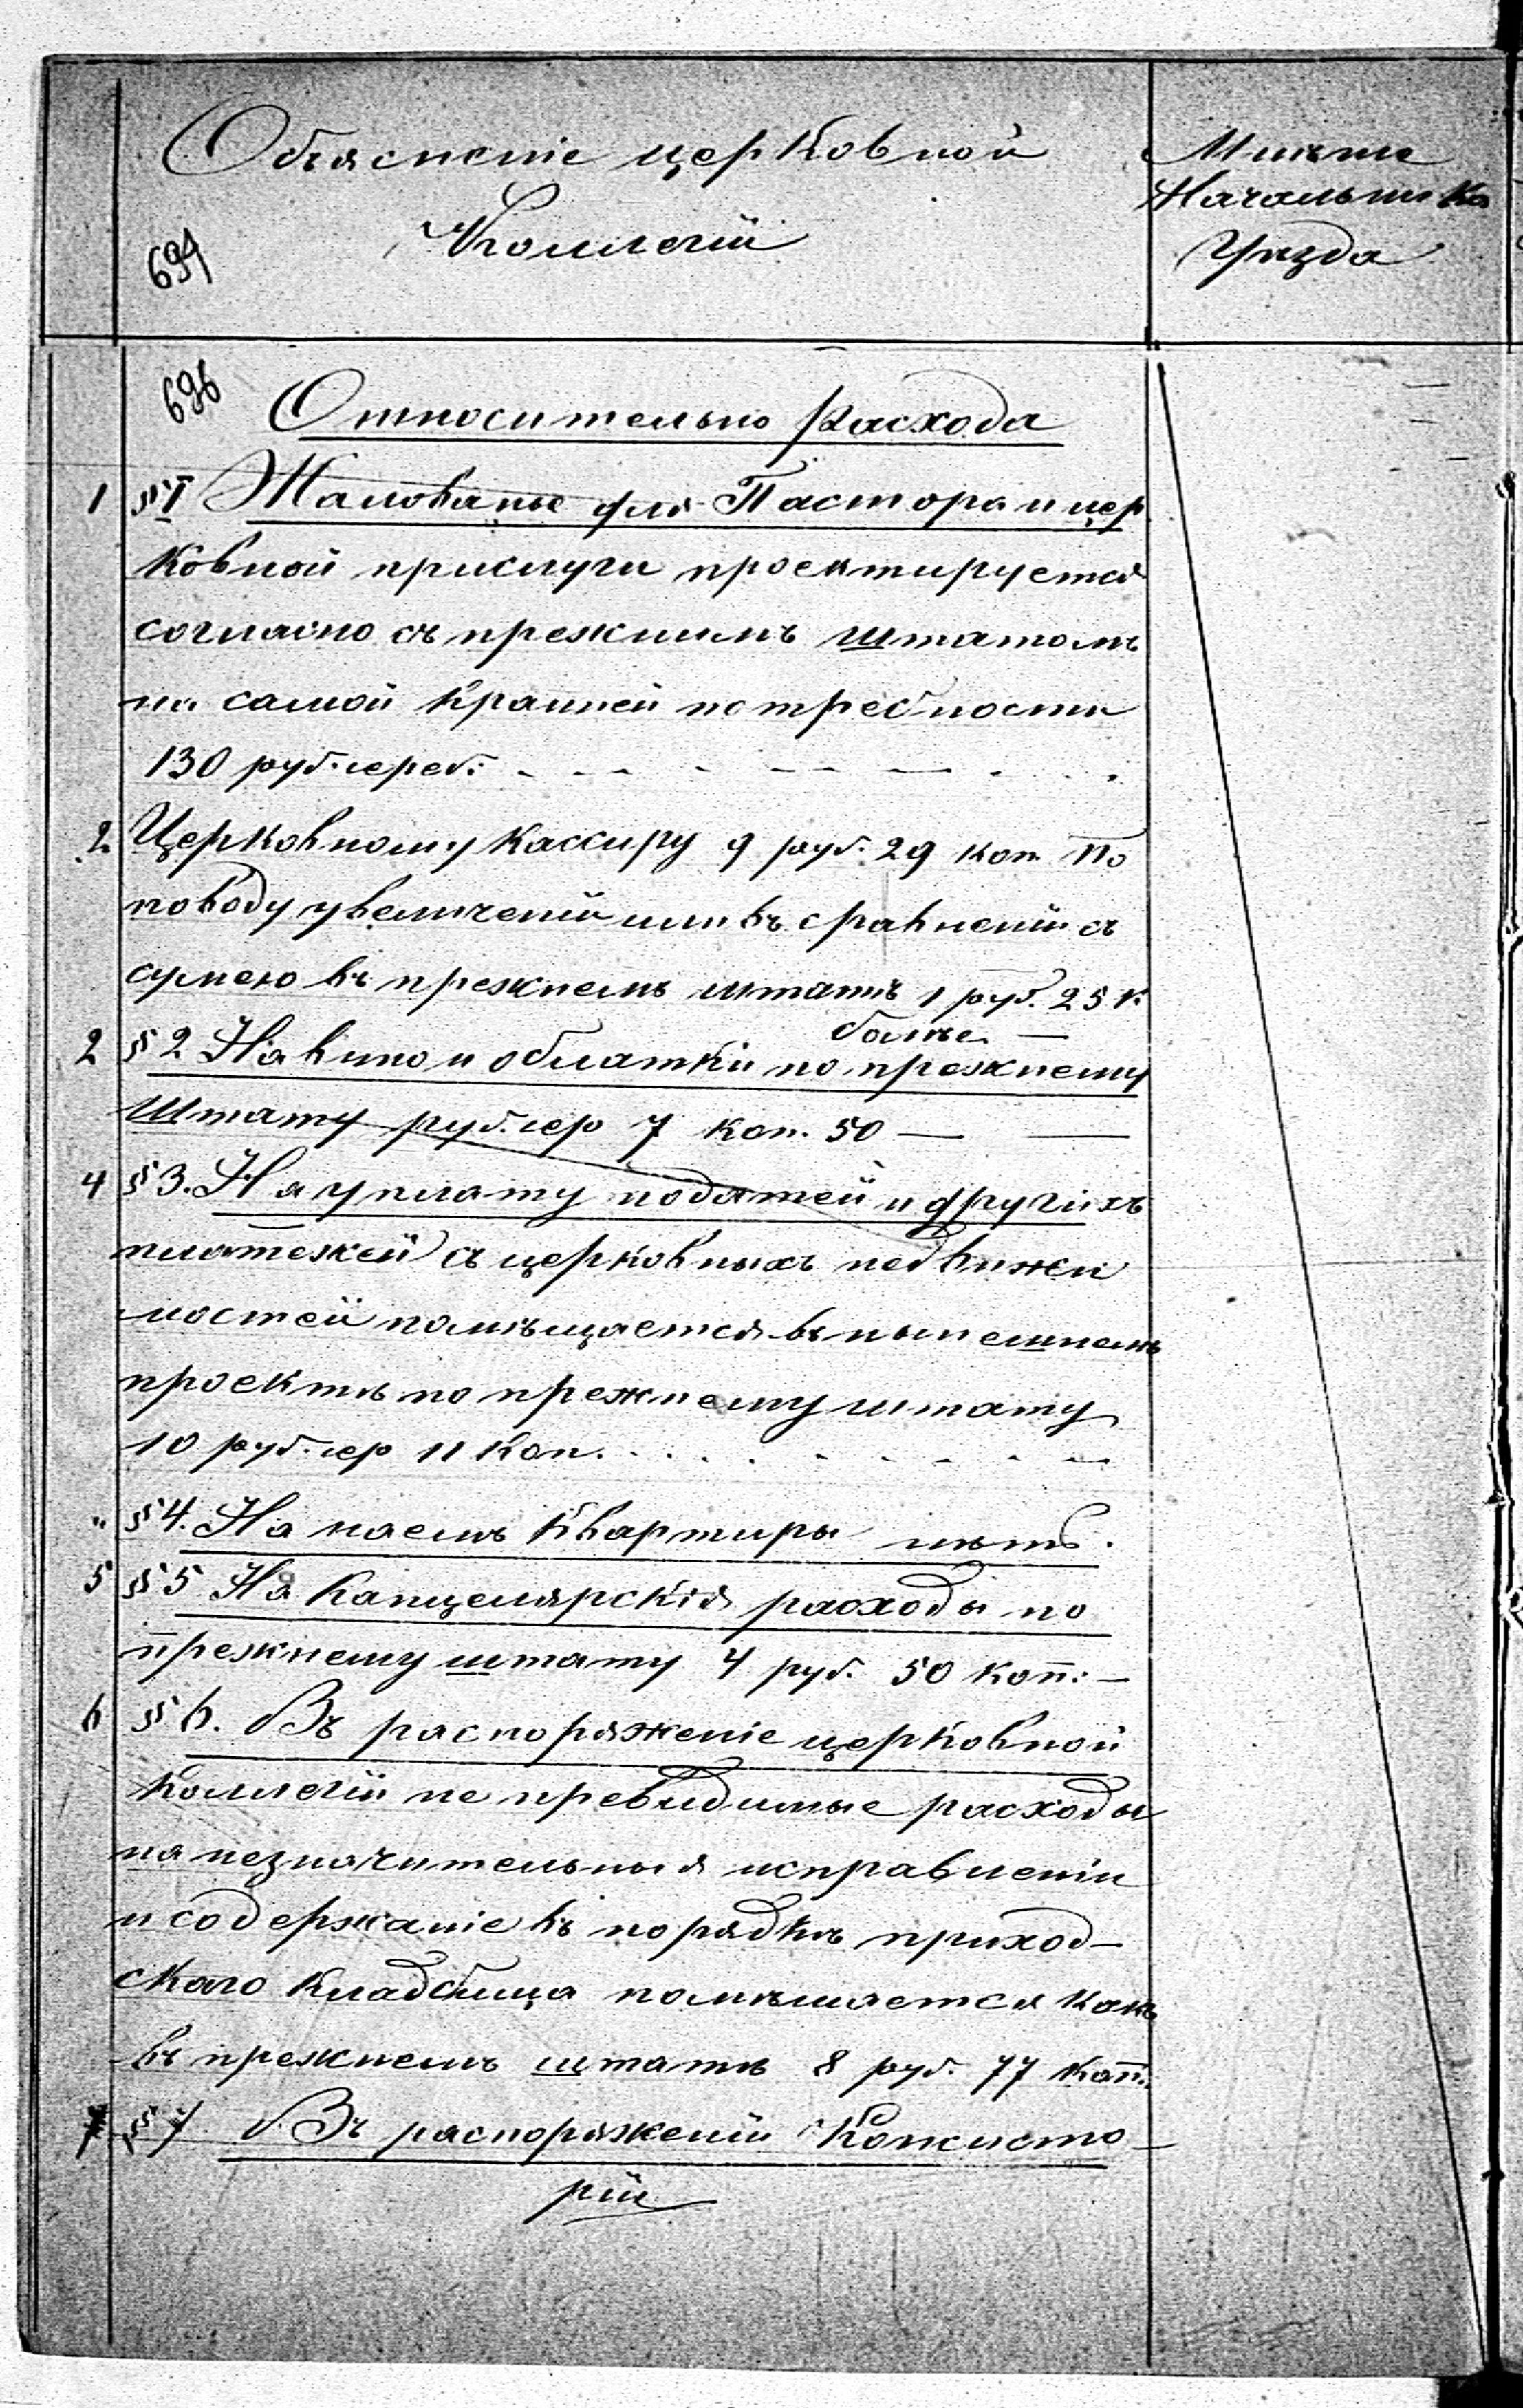 Объясненіе церковной
Коллегіи
694
Мнѣніе
Начальника
Уѣзда
696
Относительно Расхода
1 §1 Жалованье для Пастора и цер
ковной прислуги проектируется
согласно съ прежнимъ штатомъ
на самой крайней потребности
130 руб. сереб:
2 Церковному Кассиру 9 руб. 29 коп По
поводу увеличеніи въ сравненіи съ
сумею въ прежнемъ штатѣ 1 руб. 25 к.
болѣе —
2 §2 На вино и облатки по прежнему
Штату руб. сер 7 коп. 50 — —
4 §3. На уплату податей и другихъ
платежей съ церковныхъ недвижи
мостей помѣщается въ нынешнемъ
проектѣ по прежнему штату
10 руб. сер 11 коп.
" §4. На наемъ квартиры нѣтъ.
5 §5 На Канцелярскія расходы по
прежнему штату 4 руб. 50 коп: —
6 §6. Въ распоряженіе церковной
Коллегіи не превидимые расходы
на незначительныя исправленіи
и содержаніе въ порядкѣ приход-
скаго кладбища помѣшается какъ
въ прежнемъ штатѣ 8 руб. 77 коп.
7 §7. Въ распоряженіи Консисто-
ріи